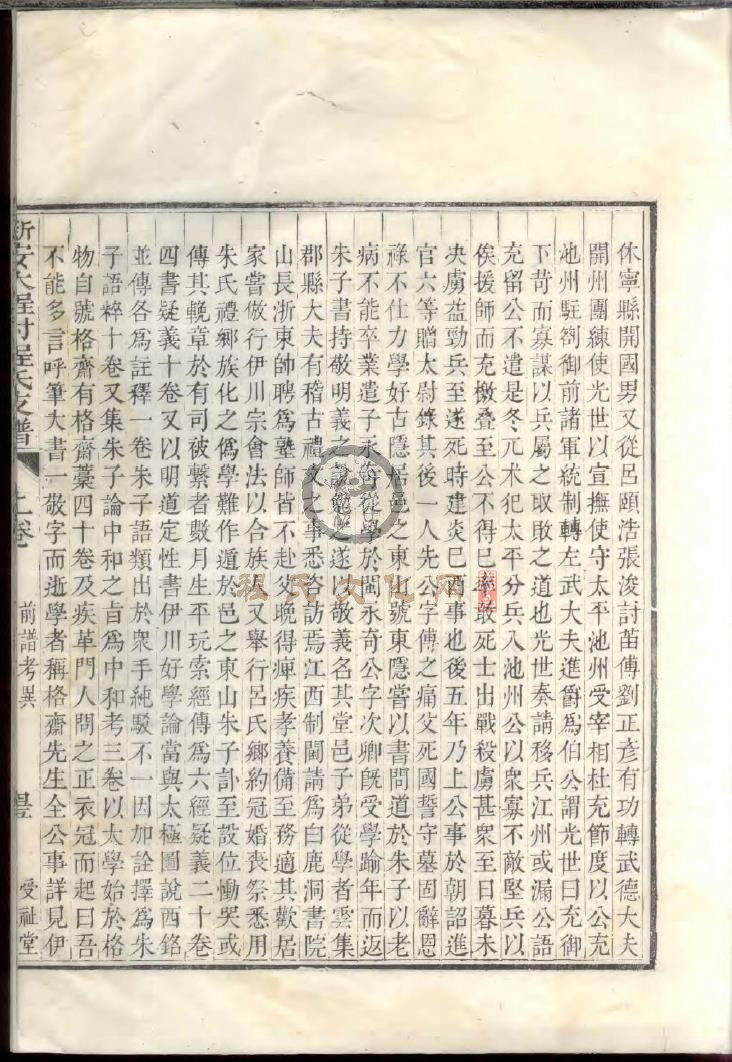 休寧縣開國男又從呂頤浩張浚討苗傅劉正彥有功轉武德大夫
開州團練使光世以宣撫使守太平池州受宰相杜充節度以公充
池州駐劄御前諸軍統制轉左武大夫進爵爲伯公謂光世曰充御
下苛而寡謀以兵屬之取敗之道也光世奏請移兵江州或漏公語
充留公不遣是冬兀术犯太平分兵入池州公以衆寡不敵堅兵以
俟援師而充檄疊至公不得巳率敢死士出戰殺虜甚衆至日暮未
央虜益勁兵至遂死時建炎巳酉事也後五年乃上公事於朝詔進
官六等贈太尉錄其後一人先公字傳之痛父死國誓守墓固辭恩
祿不仕力學好古隱居邑之東山號東隱嘗以書問道於朱子以老
病不能卒業遣子永奇從學於閩永奇公字次卿旣受學踰年而返
朱子書持敬明義之說勉之遂以敬義名其堂邑子弟從學者雲集
郡縣大夫有稽古禮文之事悉咨訪焉江西制閫請爲白鹿洞書院
山長浙東帥聘爲塾師皆不赴父晚得痺疾孝養備至務適其歡居
家嘗倣行伊川宗會法以合族人又舉行呂氏鄉約冠婚喪祭悉用
朱氏禮鄉族化之僞學難作遁於邑之東山朱子訃至設位慟哭或
傳其輓章於有司被繫者數月生平玩索經傳爲六經疑義二十卷
四書疑義十卷又以明道定性書伊川好學論當與太極圖說西銘
並傳各爲註釋一卷朱子語類出於衆手純駁不一因加詮擇爲朱
子語粹十卷又集朱子論中和之旨爲中和考三卷以大學始於格
物自號格齋有格齋藁四十卷及疾革門人問之正衣冠而起曰吾
不能多言呼筆大書一敬字而逝學者稱格齋先生全公事詳見伊
新安大程村程氏支譜 上卷 前譜考異 受祉堂